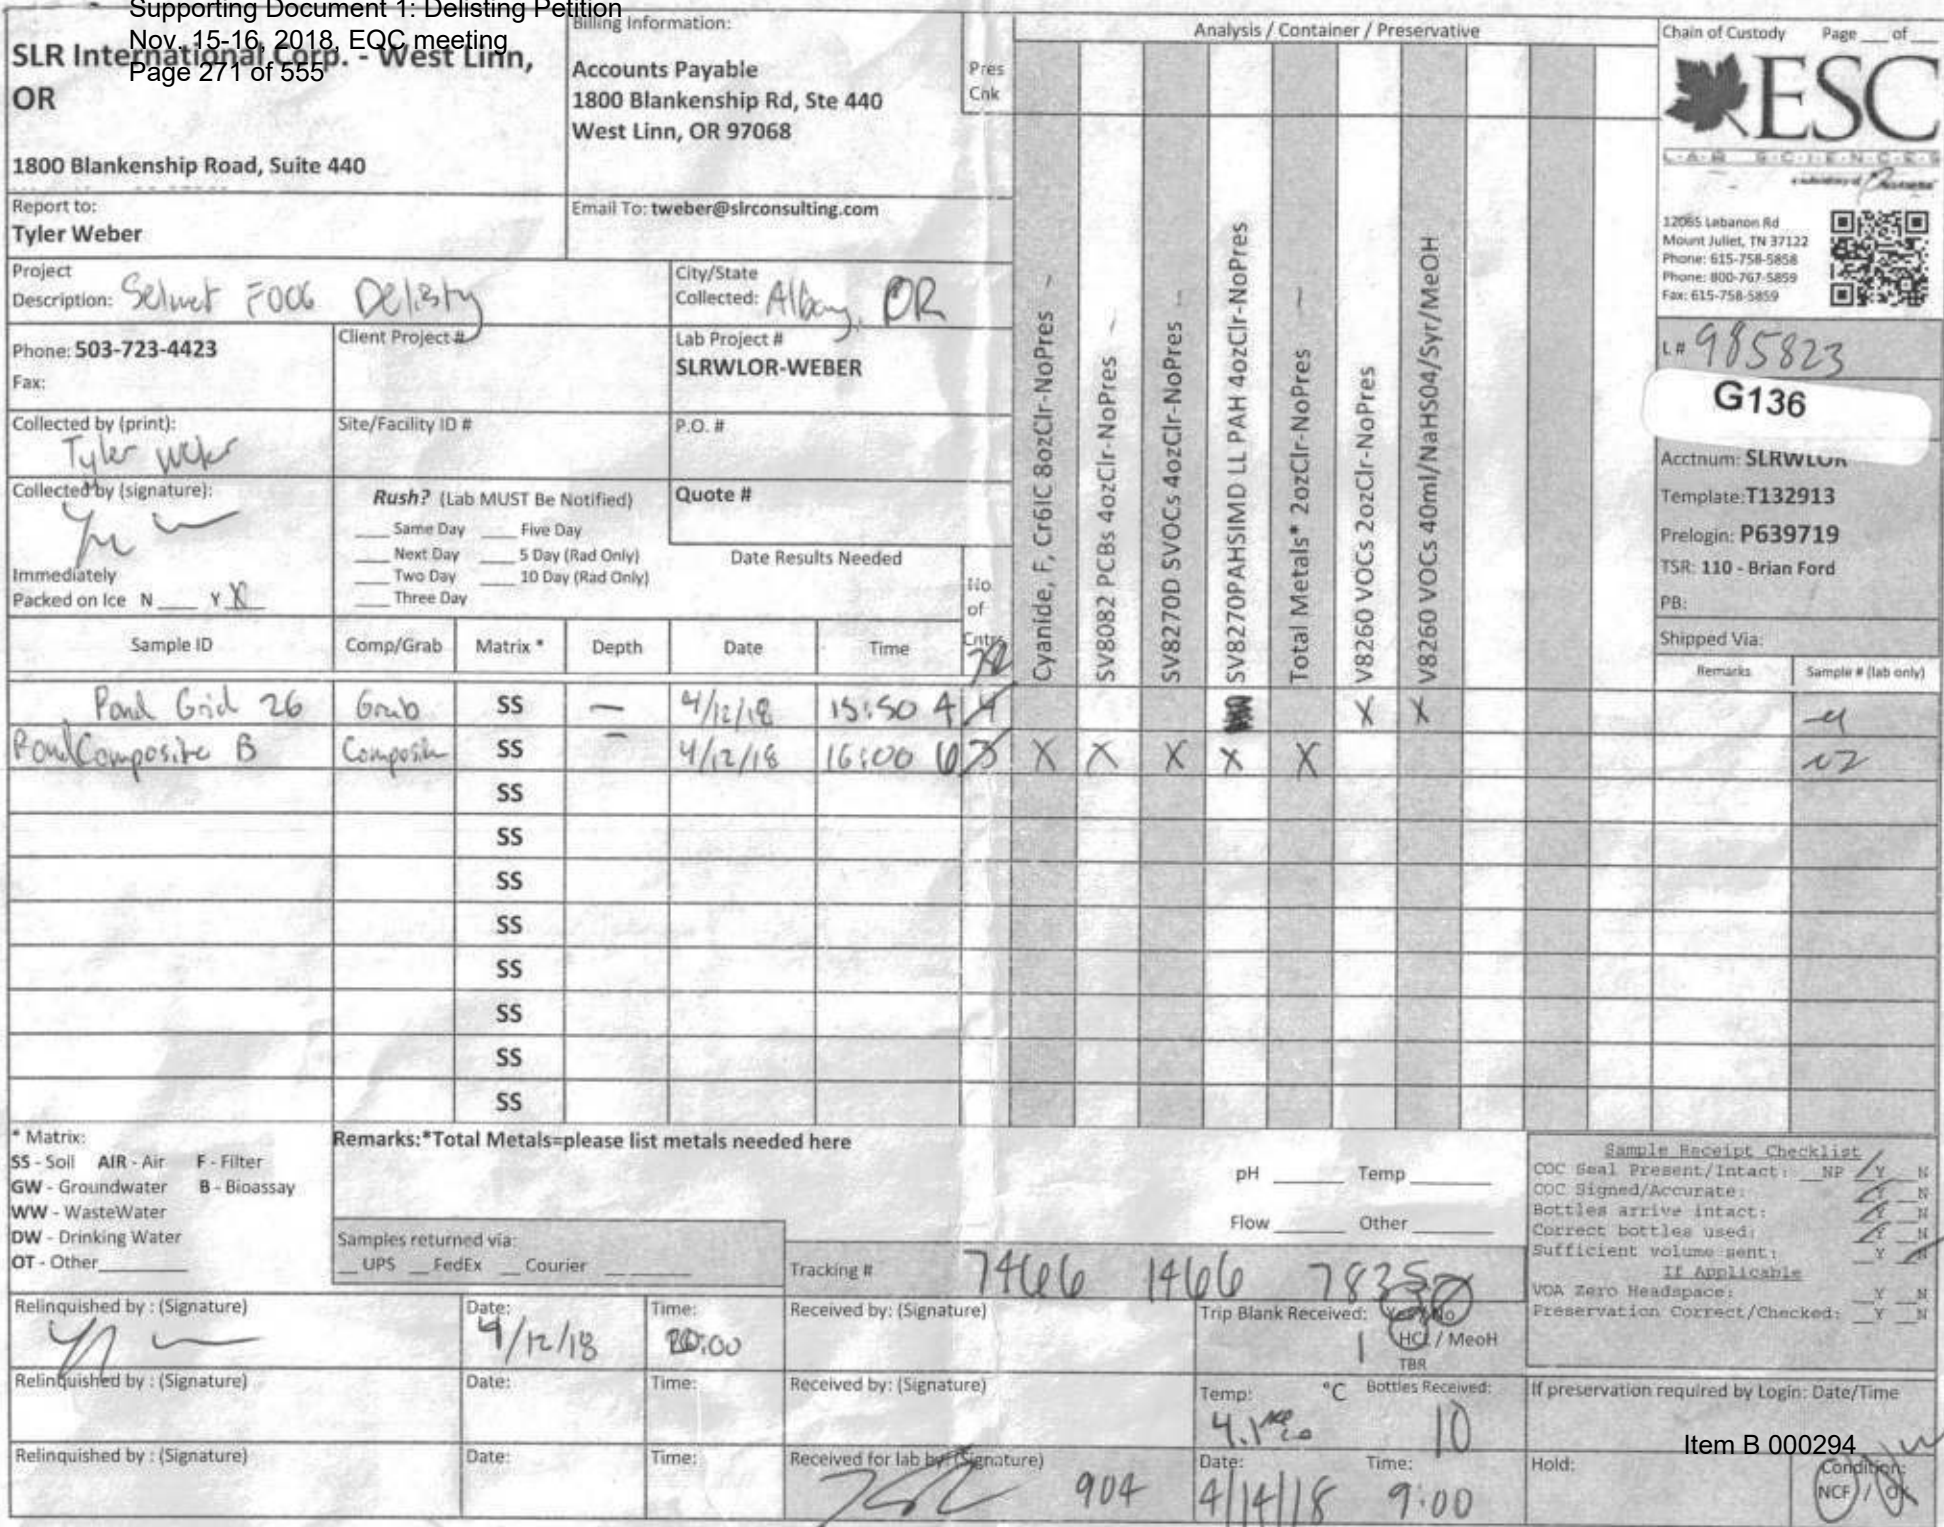 Supporting Document 1: Delisting Petition
Nov. 15-16, 2018, EQC meeting
Page 271 of 555
SLR International Corp. - West Linn, OR
1800 Blankenship Road, Suite 440
Billing Information:
Accounts Payable
1800 Blankenship Rd, Ste 440
West Linn, OR 97068
Pres
Chk
Analysis / Container / Preservative
Chain of Custody Page ___ of ___
ESC
L·A·B S·C·I·E·N·C·E·S
a subsidiary of
12065 Lebanon Rd
Mount Juliet, TN 37122
Phone: 615-758-5858
Phone: 800-767-5859
Fax: 615-758-5859
Report to:
Tyler Weber
Email To: tweber@slrconsulting.com
Project
Description: Selmet F006 Delisty
City/State
Collected: Albany, OR
Phone: 503-723-4423
Fax:
Client Project #
Lab Project #
SLRWLOR-WEBER
L# 985823
G136
Collected by (print):
Tyler Weber
Site/Facility ID #
P.O. #
Acctnum: SLRWLOR
Template:T132913
Prelogin: P639719
TSR: 110 - Brian Ford
PB:
Shipped Via:
Collected by (signature):
Immediately
Packed on Ice N ___ Y X
Rush? (Lab MUST Be Notified)
___ Same Day ___ Five Day
___ Next Day ___ 5 Day (Rad Only)
___ Two Day ___ 10 Day (Rad Only)
___ Three Day
Quote #
Date Results Needed
No.
of
Cntrs
Cyanide, F, Cr6IC 8ozClr-NoPres
SV8082 PCBs 4ozClr-NoPres
SV8270D SVOCs 4ozClr-NoPres
SV8270PAHSIMD LL PAH 4ozClr-NoPres
Total Metals* 2ozClr-NoPres
V8260 VOCs 2ozClr-NoPres
V8260 VOCs 40ml/NaHSO4/Syr/MeOH
Sample ID Comp/Grab Matrix * Depth Date Time Remarks Sample # (lab only)
Pond Grid 26 Grab SS — 4/12/18 15:50 4 X X
Pond Composite B Composite SS — 4/12/18 16:00 6 X X X X X 02
SS
SS
SS
SS
SS
SS
SS
SS
* Matrix:
SS - Soil AIR - Air F - Filter
GW - Groundwater B - Bioassay
WW - WasteWater
DW - Drinking Water
OT - Other
Remarks:*Total Metals=please list metals needed here
pH ______ Temp ______
Flow ______ Other ______
Samples returned via:
__ UPS __ FedEx __ Courier ______
Tracking # 7466 1466 7835
Sample Receipt Checklist
COC Seal Present/Intact: __NP __Y __N
COC Signed/Accurate: __Y __N
Bottles arrive intact: __Y __N
Correct bottles used: __Y __N
Sufficient volume sent: __Y __N
If Applicable
VOA Zero Headspace: __Y __N
Preservation Correct/Checked: __Y __N
Relinquished by : (Signature)
Date: 4/12/18
Time: 20:00
Received by: (Signature)
Trip Blank Received: Yes / No
1 HCL / MeoH
TBR
Relinquished by : (Signature)
Date:
Time:
Received by: (Signature)
Temp: °C
4.1
Bottles Received:
10
If preservation required by Login: Date/Time
Relinquished by : (Signature)
Date:
Time:
Received for lab by: (Signature)
904
Date: 4/14/18
Time: 9:00
Hold:
Item B 000294
Condition:
NCF / OK